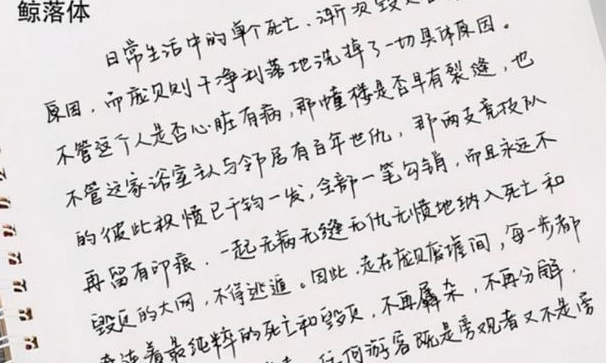 鲸落体
日常生活中的单个死亡、渐次毁
原因，而庞贝则干净利落地洗掉了一切具体原因。
不管这个人是否心脏有病，那幢楼是否早有裂缝，也
不管这家浴室主人与邻居有百年世仇，那两支竞技队
的彼此积愤已千钧一发，全部一笔勾销，而且永远不
再留有印痕．一起无病无缝无仇无愤地纳入死亡和
毁灭的大网，不得逃遁。因此，走在庞贝废墟间，每一步都
连着最纯粹的死亡和毁灭，不再羼杂，不再分解．
任何游客既是旁观者又不是旁